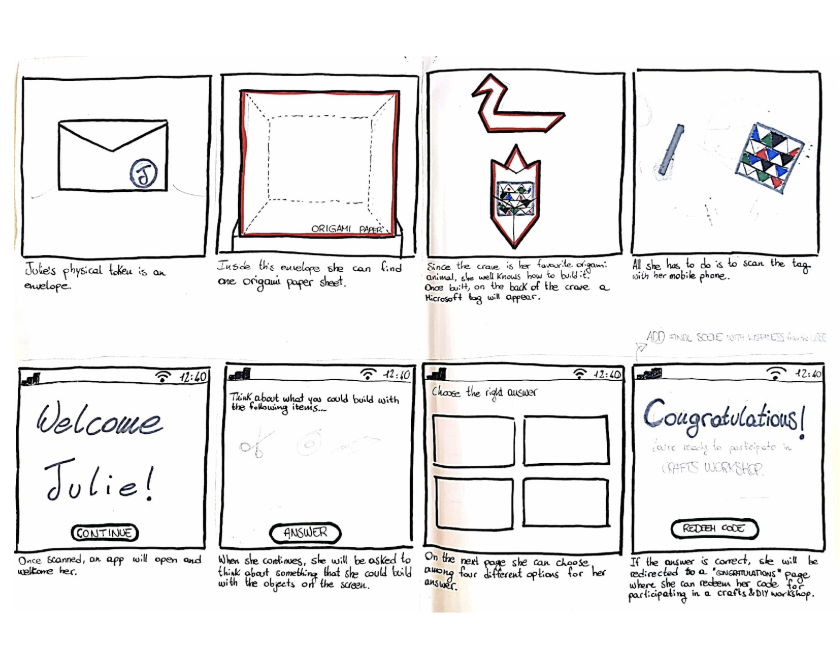 J
Julie's physical token is an
envelope.
ORIGAMI PAPER
Inside this envelope she can find
one origami paper sheet.
Since the crave is her favourite origami
animal, she well knows how to build it.
Once built, on the back of the crave a
Microsoft tag will appear.
All she has to do is to scan the tag
with her mobile phone.
ADD FINAL SCENE WITH
12:40
Welcome
Julie!
CONTINUE
Once scanned, an app will open and
welcome her.
12:40
Think about what you could build with
the following items...
ANSWER
When she continues, she will be asked to
think about something that she could build
with the objects on the screen.
12:40
Choose the right answer
On the next page she can choose
among four different options for her
answer.
12:40
Congratulations!
You're ready to participate in
CRAFTS WORKSHOP.
REDEEM CODE
If the answer is correct, she will be
redirected to a "CONGRATULATIONS" page
where she can redeem her code for
participating in a crafts&DIY workshop.